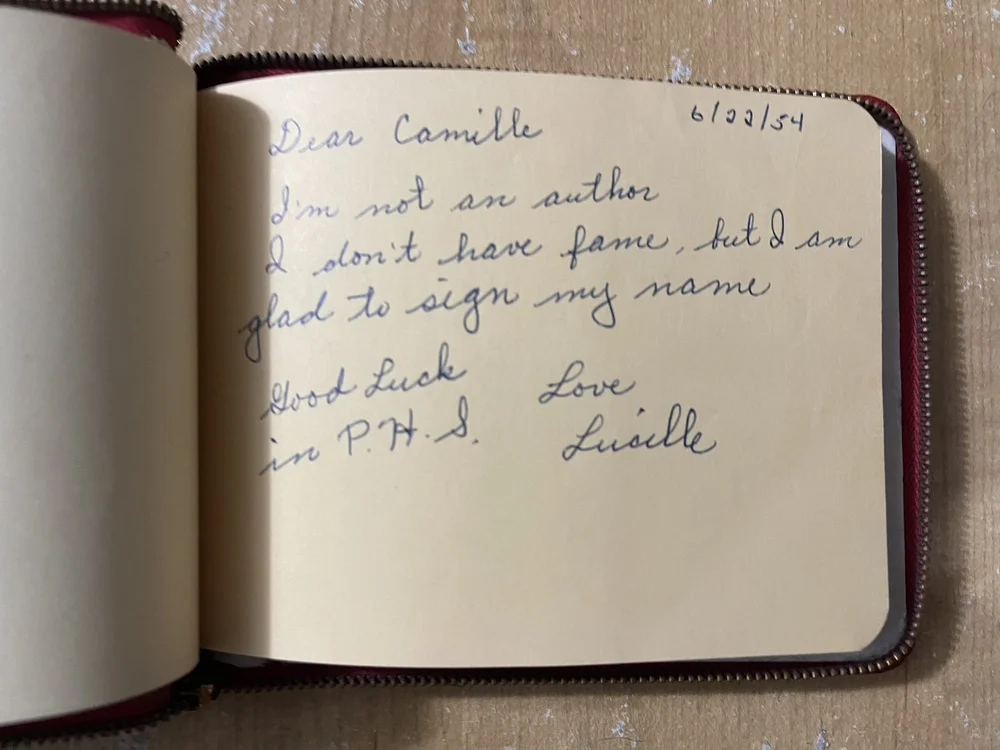 6/22/54
Dear Camille
I'm not an author
I don't have fame, but I am
glad to sign my name
Good Luck
in P.H.S.
Love
Lucille